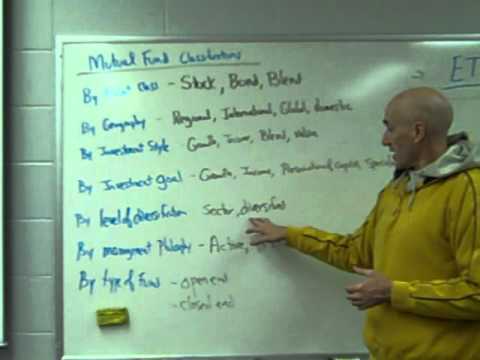 Mutual Fund Classifications
ET
By Asset Class - Stock, Bond, Blend
By Geography - Regional, International, Global, domestic
By Investment Style - Growth, Income, Blend, Value
By Investment goal - Growth, Income, Preservation of Capital,
By level of diversification Sector, diversified
By management Philosophy - Active,
By type of Fund - open end
- closed end